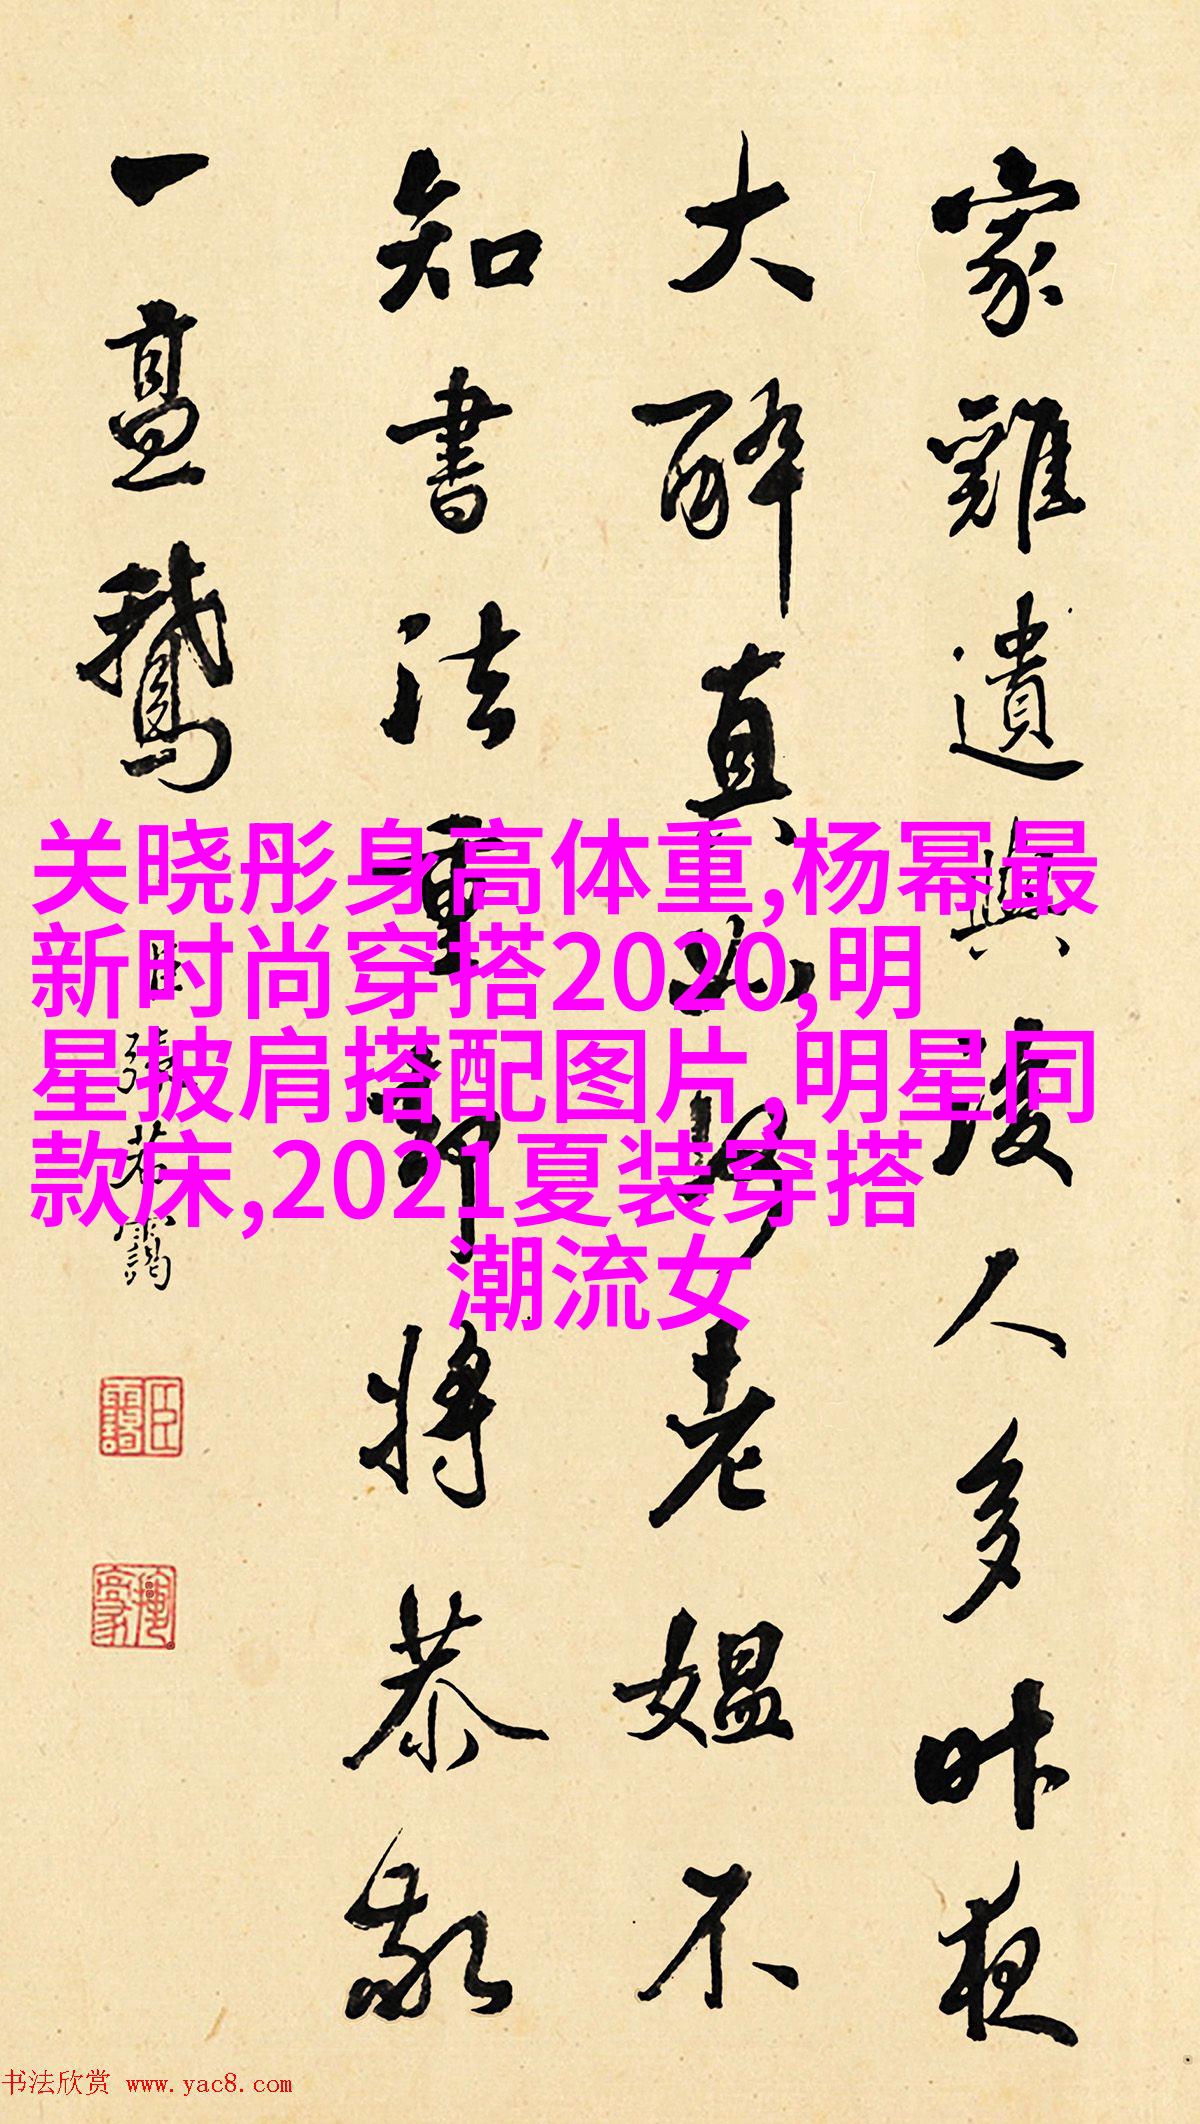 家雞遺與後人多昨夜
大醉直山阿老媼不
知書法重却將恭敬
一 鵝
臣張若靄
关晓彤身高体重,杨幂最
新时尚穿搭2020,明
星披肩搭配图片,明星同
款床,2021夏装穿搭
潮流女
臣靄
书法欣赏 www.yac8.com